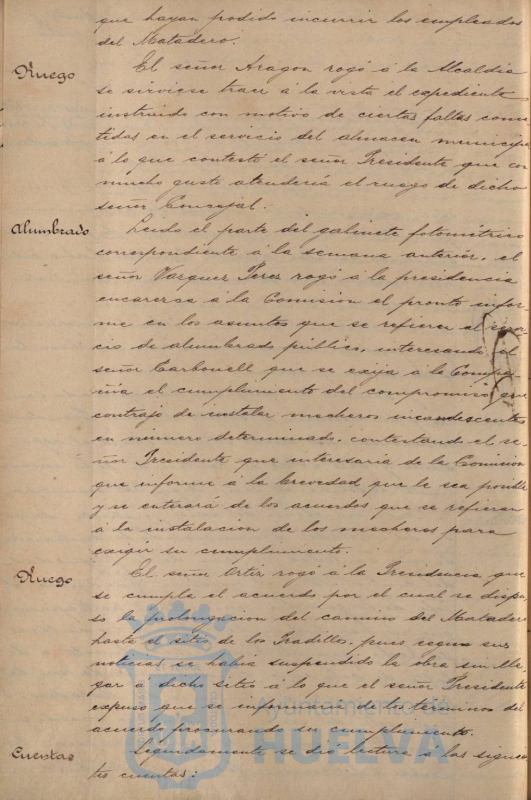 que hayan podido incurrir los empleados
del Matadero.
Ruego
El señor Aragon rogó á la Alcaldia
se sirviese traer á la vista el expediente
instruido con motivo de ciertas faltas come-
tidas en el servicio del almacen municipal
á lo que contestó el señor Presidente que con
mucho gusto atenderia el ruego de dicho
señor Concejal.
Alumbrado
Leido el parte del gabinete fotométrico
correspondiente á la semana anterior, el
señor Vazquez Perez rogó á la presidencia
encarezca á la Comision el pronto infor-
me en los asuntos que se refieren al servi-
cio de alumbrado público, interesando el
señor Carbonell que se exija á la Compa-
ñia el cumplimiento del compromiso que
contrajo de instalar mecheros incandescentes
en número determinado, contestando el se-
ñor Presidente que interesaria de la Comision
que informe á la brevedad que le sea posible
y se enterará de los acuerdos que se refieran
á la instalacion de los mecheros para
exigir su cumplimiento.
Ruego
El señor Ortiz rogó á la Presidencia que
se cumpla el acuerdo por el cual se dispu-
so la prolongacion del camino del Matadero
hasta el sitio de los pues segun sus
noticias se habia suspendido la obra sin lle-
gar á dicho sitio á lo que el señor Presidente
expuso que se informaria de los términos del
acuerdo procurando su cumplimiento.
Cuentas
Seguidamente se dió lectura á las siguien-
tes cuentas:
Ayuntamiento de
HUELVA